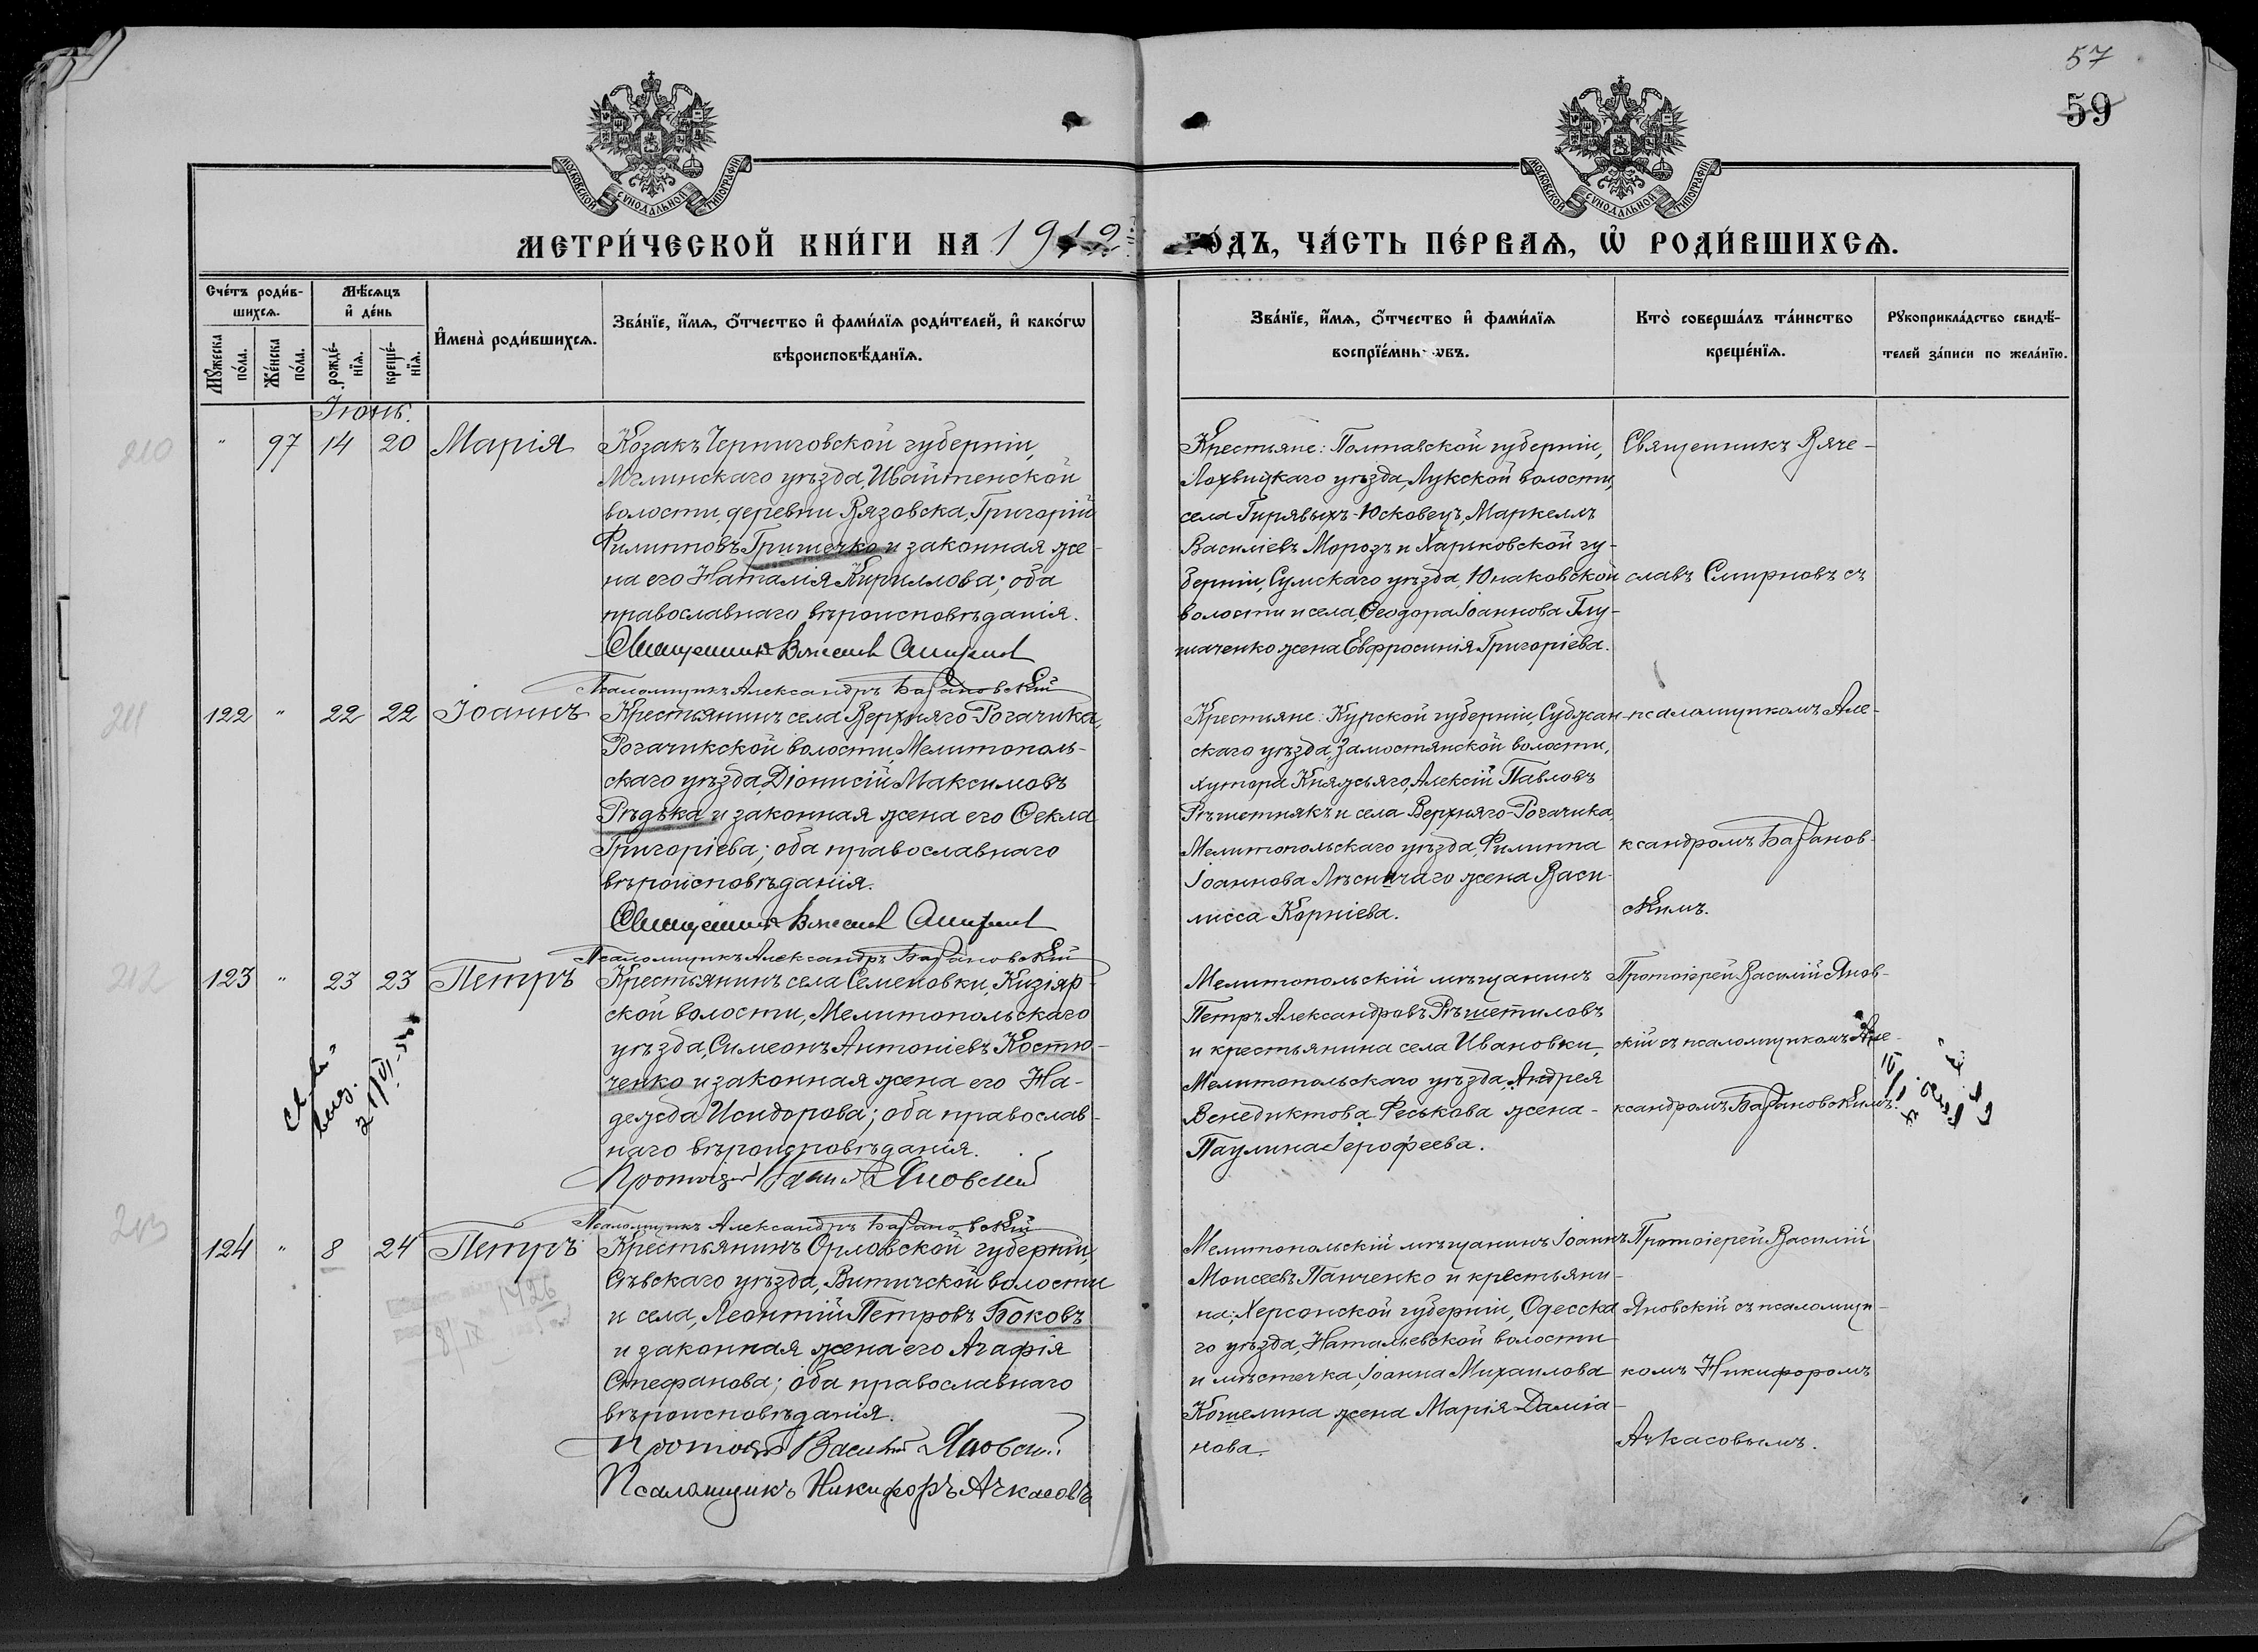 57
59
МОСКОВСКОЙ СѴНОДАЛЬНОЙ ТИПОГРАФІИ
МОСКОВСКОЙ СѴНОДАЛЬНОЙ ТИПОГРАФІИ
МЕТРИ́ЧЕСКОЙ КНИ́ГИ НА 1912 ГО́ДЪ, ЧА́СТЬ ПЕ́РВАѦ, Ѡ҆ РОДИ́ВШИХСѦ.
Сче́тъ роди́в-
шихсѧ.
Мѣ́сѧцъ
и҆ де́нь
Мꙋ́жеска
по́ла.
Же́нска
по́ла.
рожде́-
нїѧ.
креще́-
нїѧ.
И҆мена̀ роди́вшихсѧ.
Зва́нїе, и҆́мѧ, ѻ҆́тчество и҆ фами́лїѧ роди́телей, и҆ како́гѡ
вѣроисповѣ́данїѧ.
Зва́нїе, и҆́мѧ, ѻ҆́тчество и҆ фами́лїѧ
воспрїе́мникѡвъ.
Кто̀ соверша́лъ та́инство
креще́нїѧ.
Рꙋкоприкла́дство свидѣ́-
телей за́писи по жела́нїю.
Іюнь.
210
" 97 14 20 Марія
Козакъ Черниговской губерніи,
Мглинскаго уѣзда, Ивайтенской
волости, деревни Рязовска, Григорій
Филипповъ Гришечко и законная же-
на его Наталія Кириллова; оба
православнаго вѣроисповѣданія.
Священникъ Вячеславъ Смирновъ
Псаломщикъ Александръ Барановскій
Крестьяне: Полтавской губерніи,
Лохвицкаго уѣзда, Лукской волости,
села Гирявыхъ-Юсковецъ, Маркеллъ
Василіевъ Морозъ и Харьковской гу-
берніи, Сумскаго уѣзда, Юнаковской
волости и села, Ѳеодора Іоаннова Глу-
шаченко жена Евфросинія Григоріева.
Священникъ Вяче-
славъ Смирновъ съ
211
122 " 22 22 Іоаннъ
Крестьянинъ села Верхняго-Рогачика,
Рогачикской волости, Мелитополь-
скаго уѣзда, Діонисій Максимовъ
Рѣдька и законная жена его Ѳекла
Григоріева; оба православнаго
вѣроисповѣданія.
Священникъ Вячеславъ Смирновъ
Псаломщикъ Александръ Барановскій
Крестьяне: Курской губерніи, Суджан-
скаго уѣзда, Замостянской волости,
хутора Княжьяго, Алексій Павловъ
Рѣшетнякъ и села Верхняго-Рогачика,
Мелитопольскаго уѣзда, Филиппа
Іоаннова Лѣсничаго жена Васи-
лисса Корніева.
псаломщикомъ Але-
ксандромъ Баранов-
скимъ.
212
123 " 23 23 Петръ
Крестьянинъ села Семеновки, Кизіяр-
ской волости, Мелитопольскаго
уѣзда, Симеонъ Антоніевъ Костю-
ченко и законная жена его На-
дежда Исидорова; оба православ-
наго вѣроисповѣданія.
Протоіерей Василій Яновскій
Псаломщикъ Александръ Барановскій
Мелитопольскій мѣщанинъ
Петръ Александровъ Рѣшетиловъ
и крестьянина села Ивановки,
Мелитопольскаго уѣзда, Андрея
Венедиктова Феськова жена-
Паулина Іерофеева.
Протоіерей Василій Янов-
скій съ псаломщикомъ Але-
ксандромъ Барановскимъ.
213
124 " 8 24 Петръ
1426
8/IX
Крестьянинъ Орловской губерніи,
Сѣвскаго уѣзда, Витичской волости
и села, Леонтій Петровъ Боковъ
и законная жена его Агафія
Стефанова; оба православнаго
вѣроисповѣданія.
Протоіерей Василій Яновскій
Псаломщикъ Никифоръ Ачкасовъ
Мелитопольскій мѣщанинъ Іоаннъ
Моисеевъ Панченко и крестьяни-
на; Херсонской губерніи, Одесска
го уѣзда, Натальевской волости
и мѣстечка, Іоанна Михаилова
Кошелина жена Марія Даміа-
нова.
Протоіерей Василій
Яновскій съ псаломщи-
комъ Никифоромъ
Ачкасовымъ.